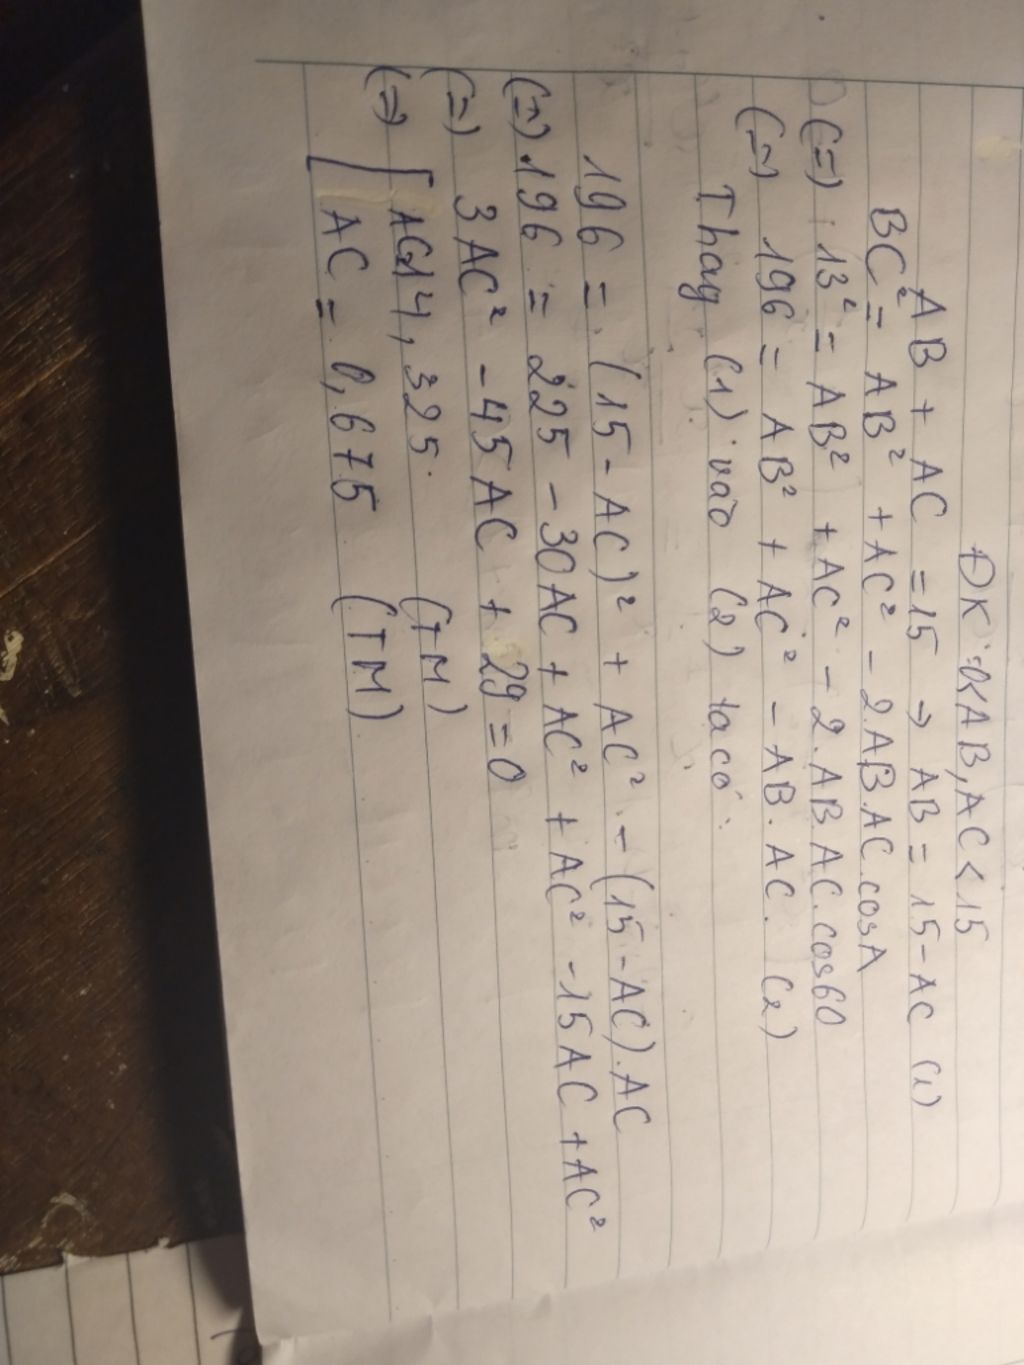 ĐK: 0<AB, AC < 15
AB + AC = 15 → AB = 15 - AC (1)
BC² = AB² + AC² - 2.AB.AC.cosA
(=) 13² = AB² + AC² - 2.AB.AC.cos60
(=) 196 = AB² + AC² - AB.AC. (2)
Thay (1) vào (2) ta có:
196 = (15 - AC)² + AC² - (15 - AC).AC
(=) 196 = 225 - 30AC + AC² + AC² - 15AC + AC²
(=) 3AC² - 45AC + 29 = 0
(=) [ AC=14,325. (TM)
[ AC = 0,675 (TM)